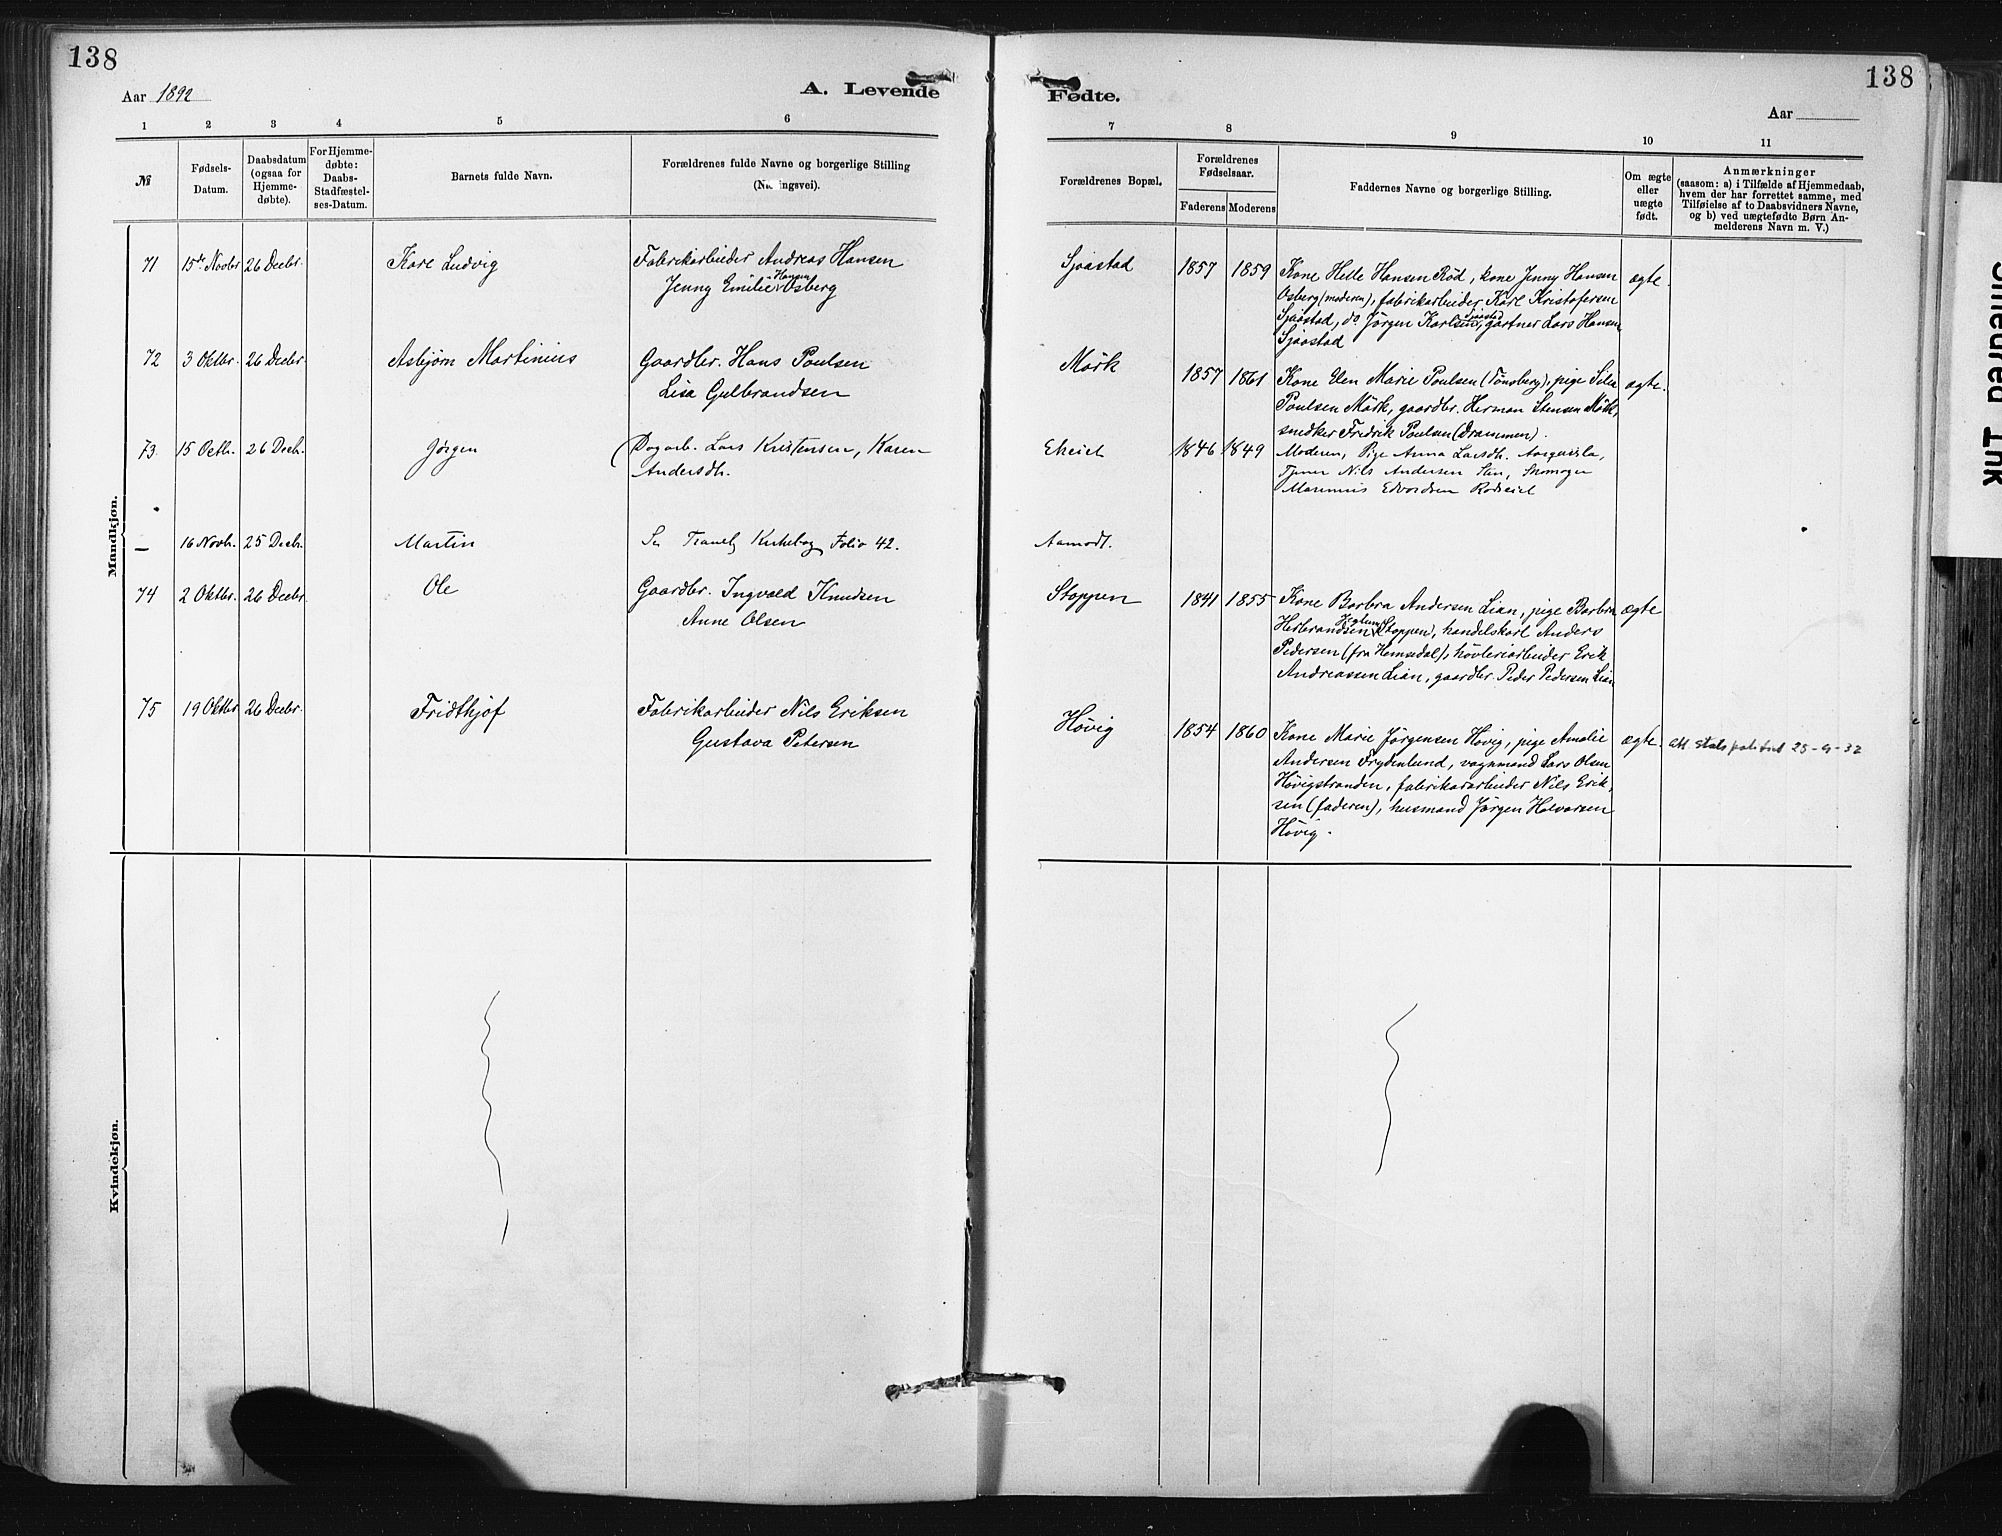 138
138
Aar 1892
A. Levende
Fødte.
Aar
1 2 3 4 5 6
7 8 9 10 11
№
Fødsels-
Datum.
Daabsdatum
(ogsaa for
Hjemme-
døbte).
For Hjemme-
døbte:
Daabs-
Stadfæstel-
ses-Datum.
Barnets fulde Navn.
Forældrenes fulde Navne og borgerlige Stilling
Forældrenes Bopæl.
Forældrenes
Fødselsaar.
Faderens Moderens
Faddernes Navne og borgerlige Stilling.
Om ægte
eller
uægte
født.
Anmærkninger
(saasom: a) i Tilfælde af Hjemmedaab,
hvem der har forrettet samme, med
Tilføielse af to Daabsvidners Navne,
og b) ved uægtefødte Børn An-
melderens Navn m. V.)
Mandkjøn.
71 15de Novbr 26 Decbr. Karl Ludvig Fabrikarbeider Andreas Hansen
Jenny Emilie Hansen Osberg
Sjaastad 1857 1859 Kone Helle Hansen Rød, kone Jenny Hansen ægte.
Osberg (moderen), fabrikarbeider Karl Kristofersen
Sjaastad, do Jörgen Karlsen Sjaastad, gartner Lars Hansen
Sjaastad
72 3 Oktbr. 26 Decbr. Asbjørn Martinius Gaardbr. Hans Poulsen
Lisa Gulbrandsen
Mörk 1857 1861 Kone Elen Marie Poulsen (Tönsberg), pige ægte.
Poulsen Mörk, gaardbr. Herman Stensen Mörk,
snedker Fredrik Poulsen (Drammen).
73 15 Octb. 26 Decb. Jörgen Dagarb. Lars Kristensen, Karen
Andersdtr.
1846 1849 Moderen, Pige Anna Larsdtr.
Tjener Nils Andersen Lien,
Edvardsen Rødseiet
— 16 Novb. 25 Decb. Martin Se Kirkebog Folio 42.
Aamodt.
74 2 Oktbr. 26 Decbr. Ole Gaardbr. Ingvald Knudsen
Anne Olsen
Stoppen 1841 1855 Kone Barbra Andersen Lian, pige Barbra ægte
Herbrandsen (Stoppen), handelskarl Anders
Pedersen (fra Hemsedal), høvleriarbeider Erik
Andreassen Lian, gaardbr. Peder Pedersen Lian
75 19 Oktbr 26 Decbr. Fridthjof Fabrikarbeider Nils Eriksen
Gustava Petersen
Hövig 1854 1860 Kone Marie Jörgensen Hövig, pige Amalie ægte. att. statspolitiet 25-9-32
Andersen Frydenlund, vognmand Lars Olsen
Hövigstranden, fabrikarbeider Nils Erik-
sen (faderen), husmand Jörgen Halvorsen
Hövig.
Kvindekjøn.